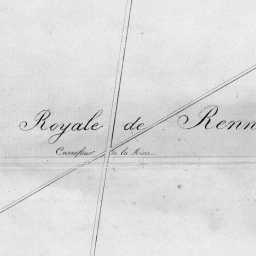 Royale de Renn
Carrefour de la